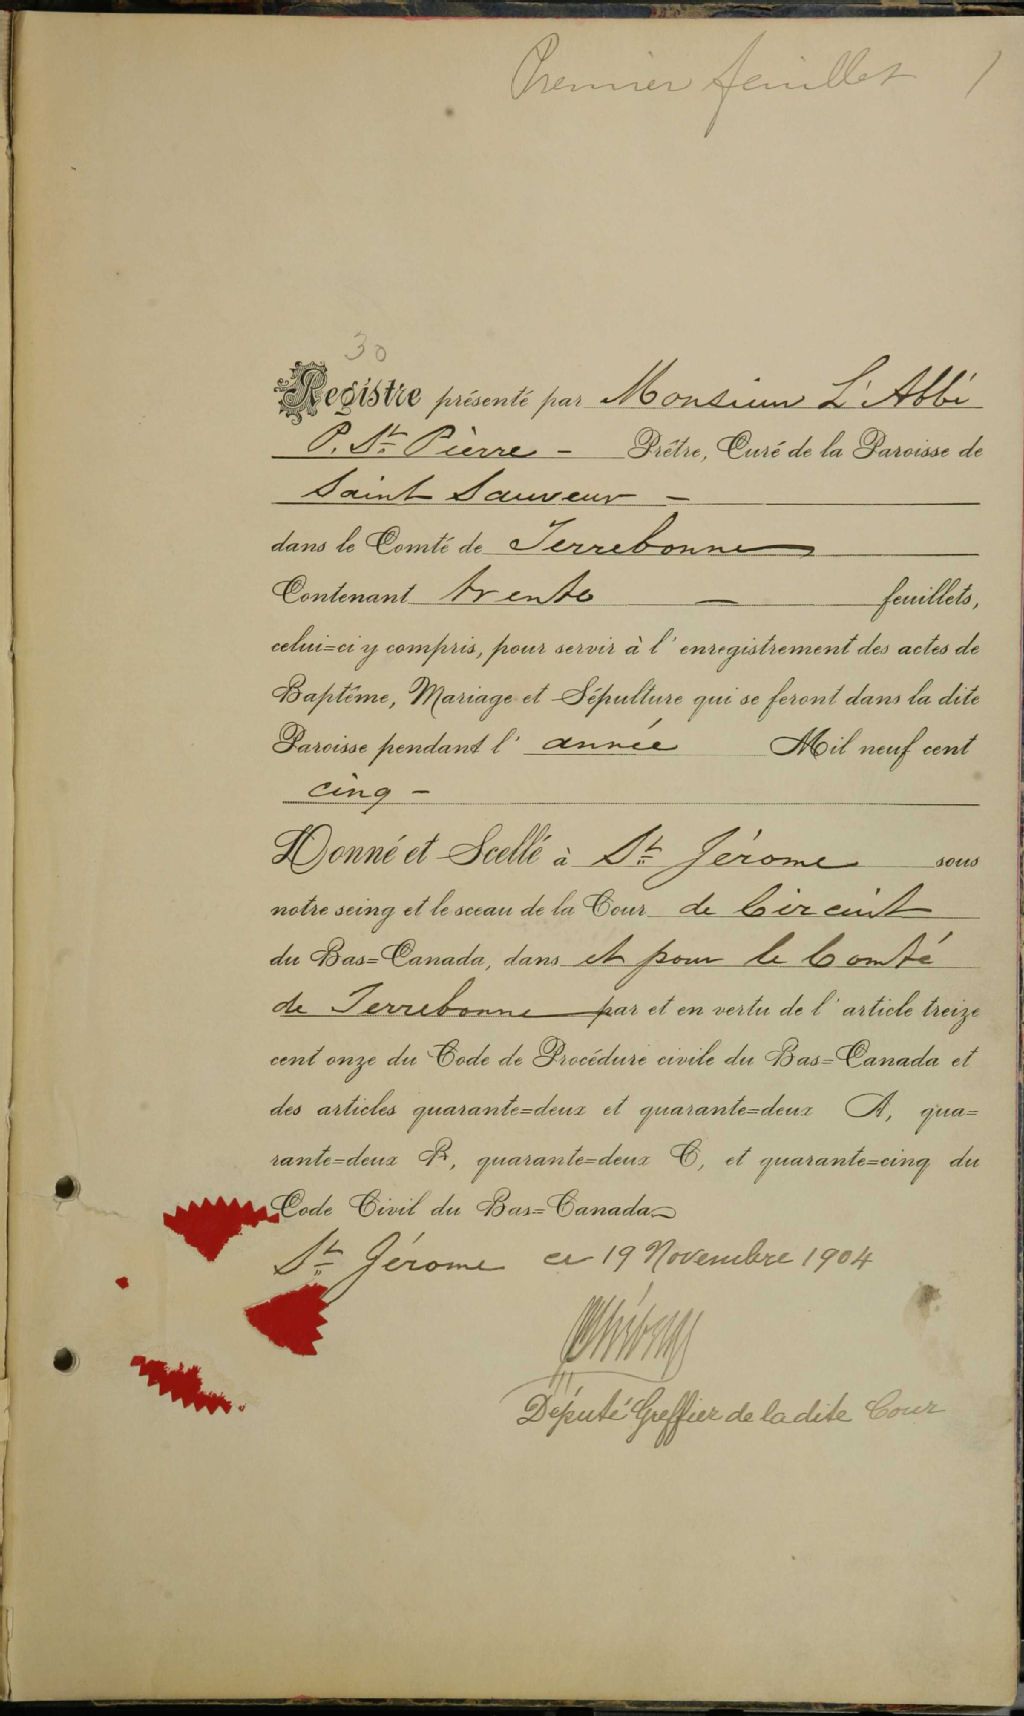 Premier feuillet 1
30
Registre présenté par Monsieur L'Abbé
P. St. Pierre - Prêtre, Curé de la Paroisse de
Saint Sauveur -
dans le Comté de Terrebonne
Contenant trente - feuillets,
celui=ci y compris, pour servir à l'enregistrement des actes de
Baptême, Mariage et Sépulture qui se feront dans la dite
Paroisse pendant l'année Mil neuf cent
cinq -
Donné et Scellé à St. Jérome sous
notre seing et le sceau de la Cour de Circuit
du Bas=Canada, dans et pour le Comté
de Terrebonne par et en vertu de l'article treize
cent onze du Code de Procédure civile du Bas=Canada et
des articles quarante=deux et quarante=deux A, qua=
rante=deux B, quarante=deux C, et quarante=cinq du
Code Civil du Bas=Canada
St. Jérome ce 19 Novembre 1904
Député Greffier de la dite Cour